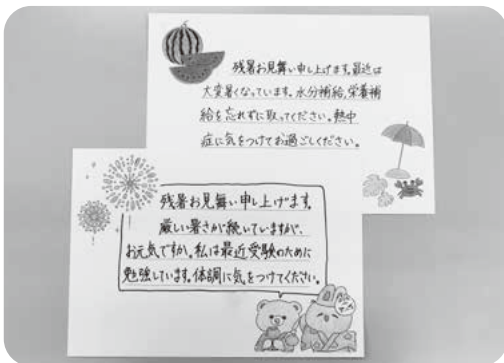 残暑お見舞い申し上げます。最近は
大変暑くなっています。水分補給、栄養補
給を忘れずに取ってください。熱中
症に気をつけてお過ごしください。
残暑お見舞い申し上げます。
厳しい暑さが続いていますが、
お元気ですか。私は最近受験のために
勉強しています。体調に気をつけてください。